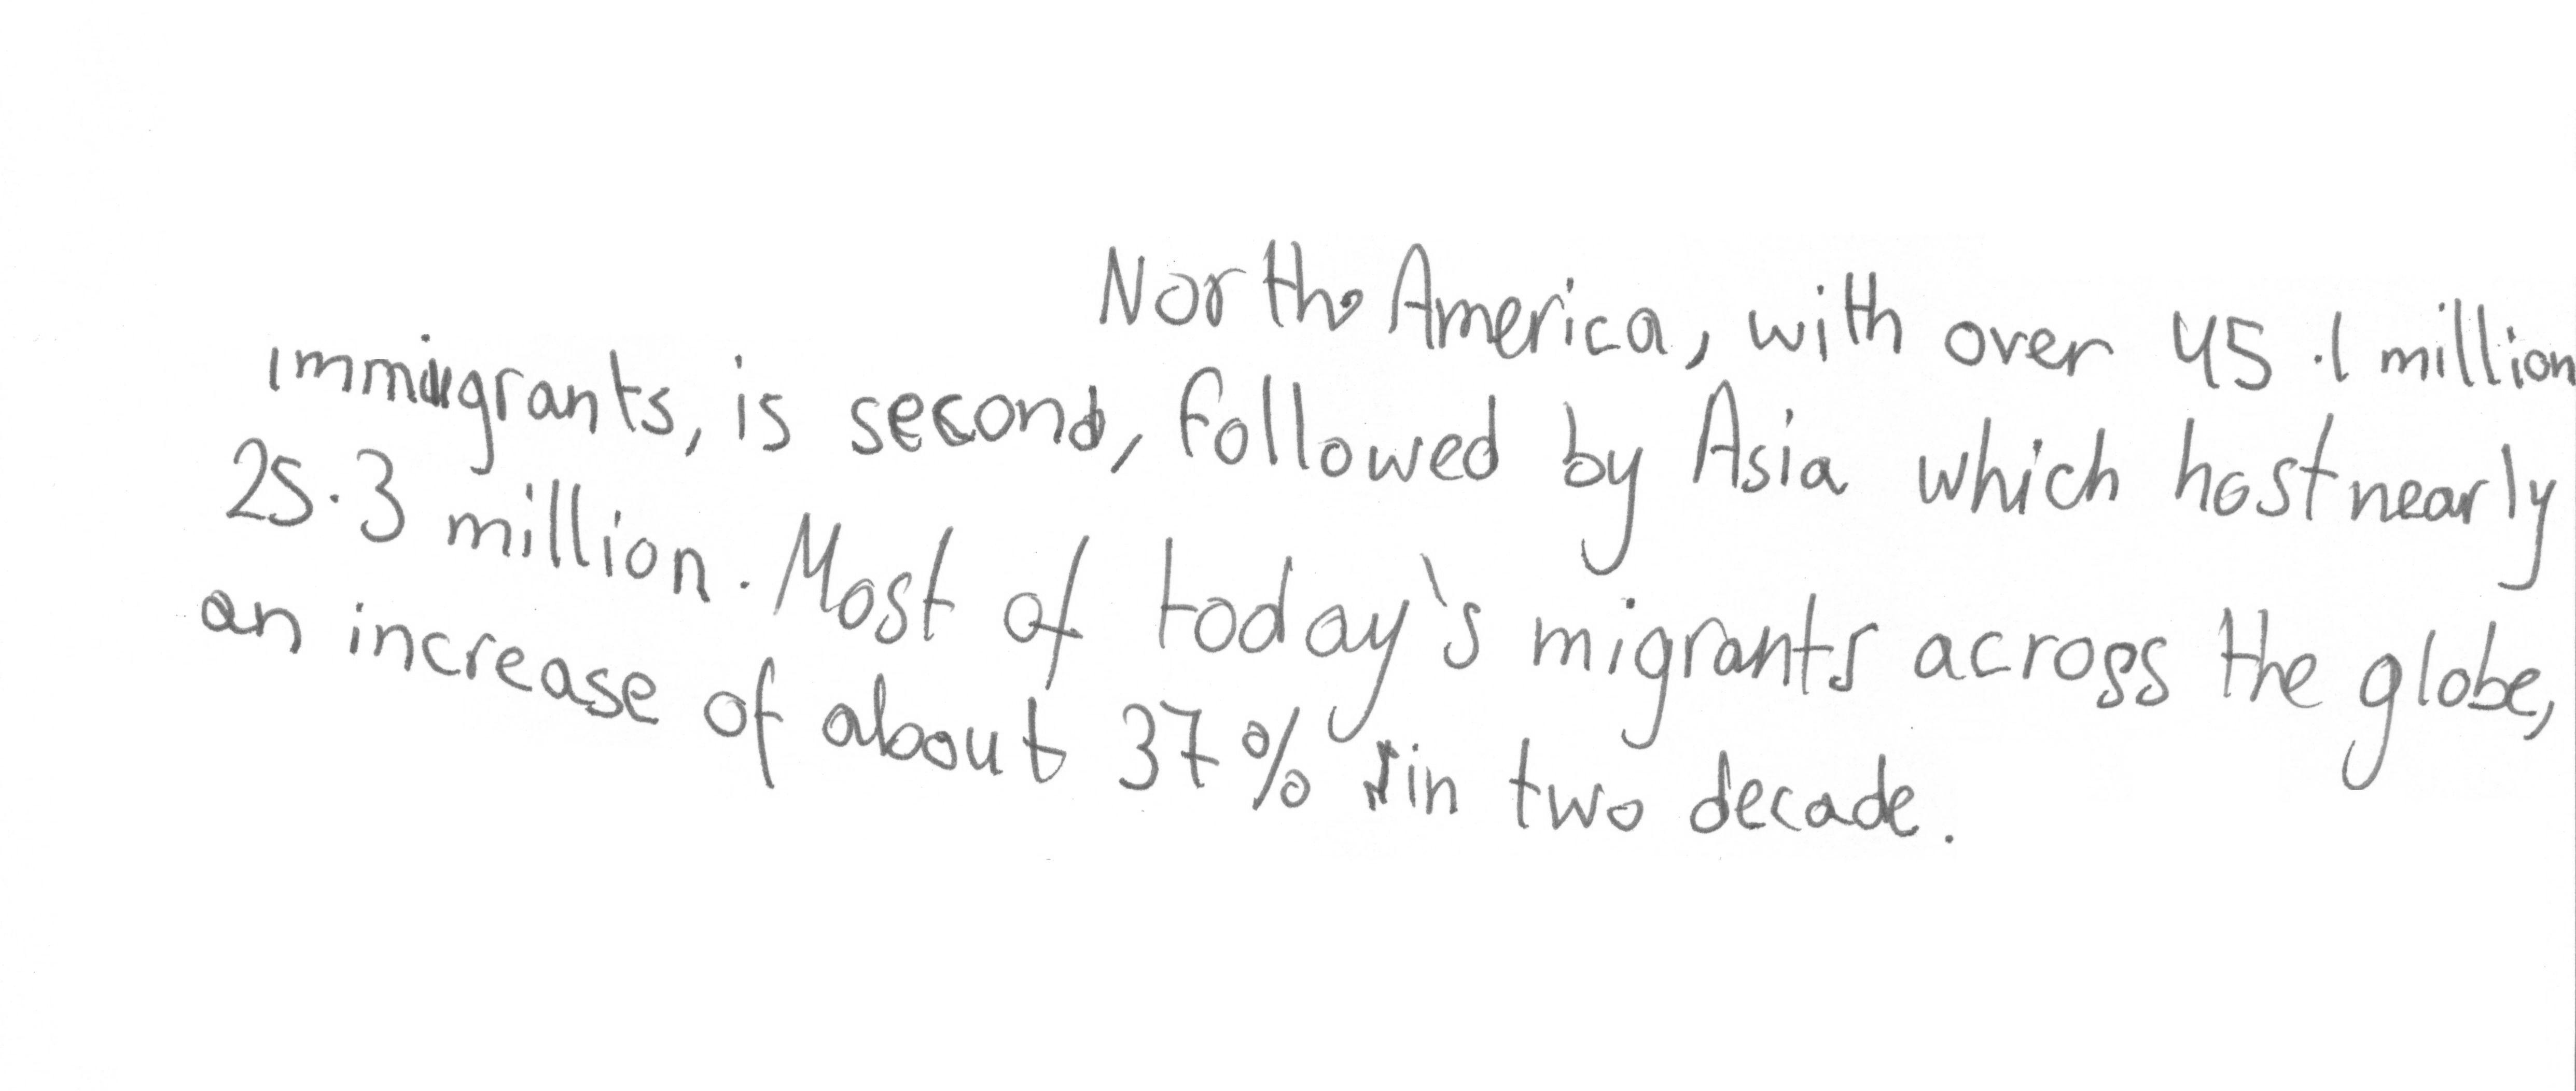 North America, with over 45.1 million
immigrants, is second, followed by Asia which host nearly
25.3 million. Most of today's migrants across the globe,
an increase of about 37% in two decade.